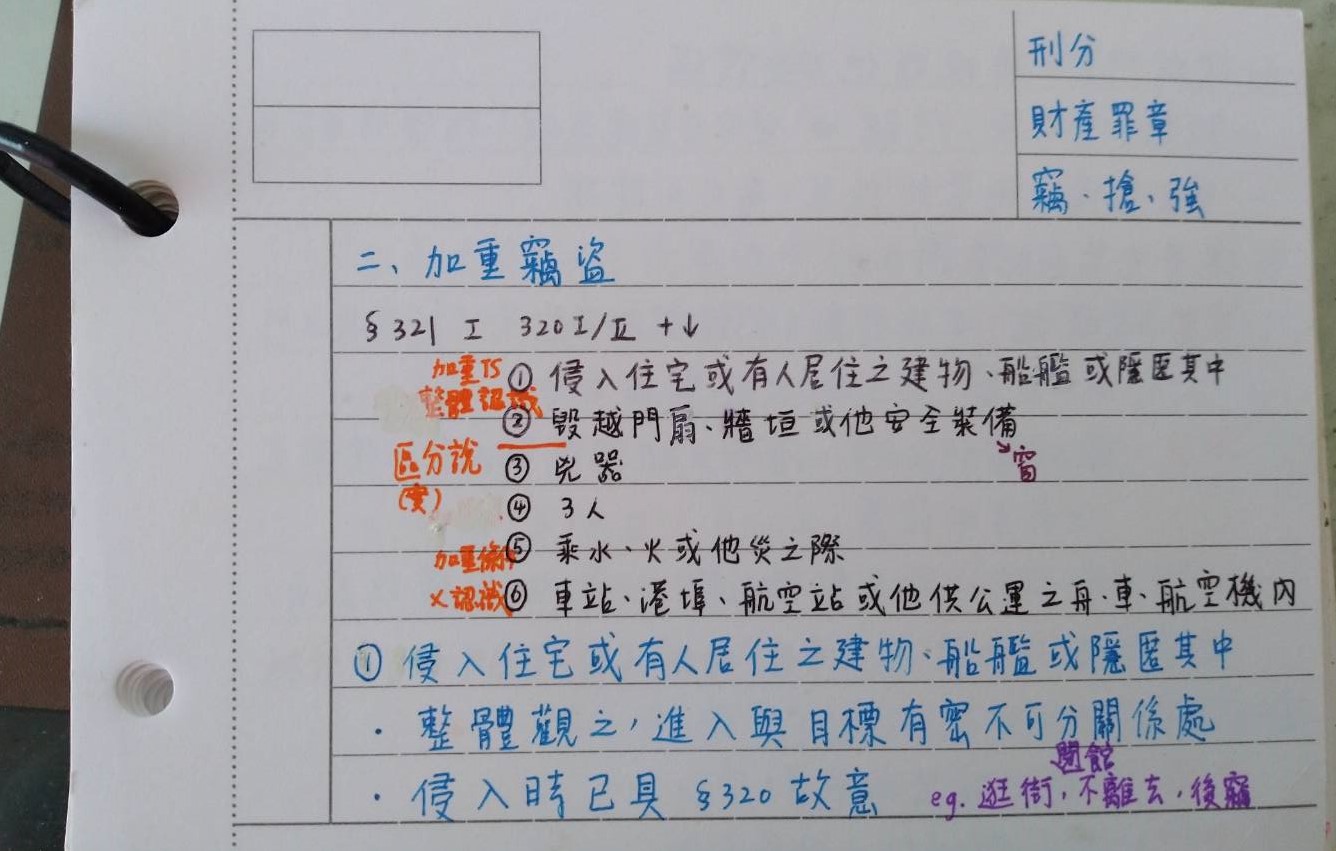 刑分
財產罪章
竊、搶、強
二、加重竊盜
§321 I 320I/II +↓
加重TS ① 侵入住宅或有人居住之建物、船艦或隱匿其中
整體認識
② 毀越門扇、牆垣或他安全裝備
窗
區分說 ③ 兇器
(實)
④ 3人
加重條件 ⑤ 乘水、火或他災之際
X認識 ⑥ 車站、港埠、航空站或他供公運之舟、車、航空機內
① 侵入住宅或有人居住之建物、船艦或隱匿其中
· 整體觀之,進入與目標有密不可分關係處
閉館
· 侵入時已具 §320 故意 eg. 逛街,不離去,後竊